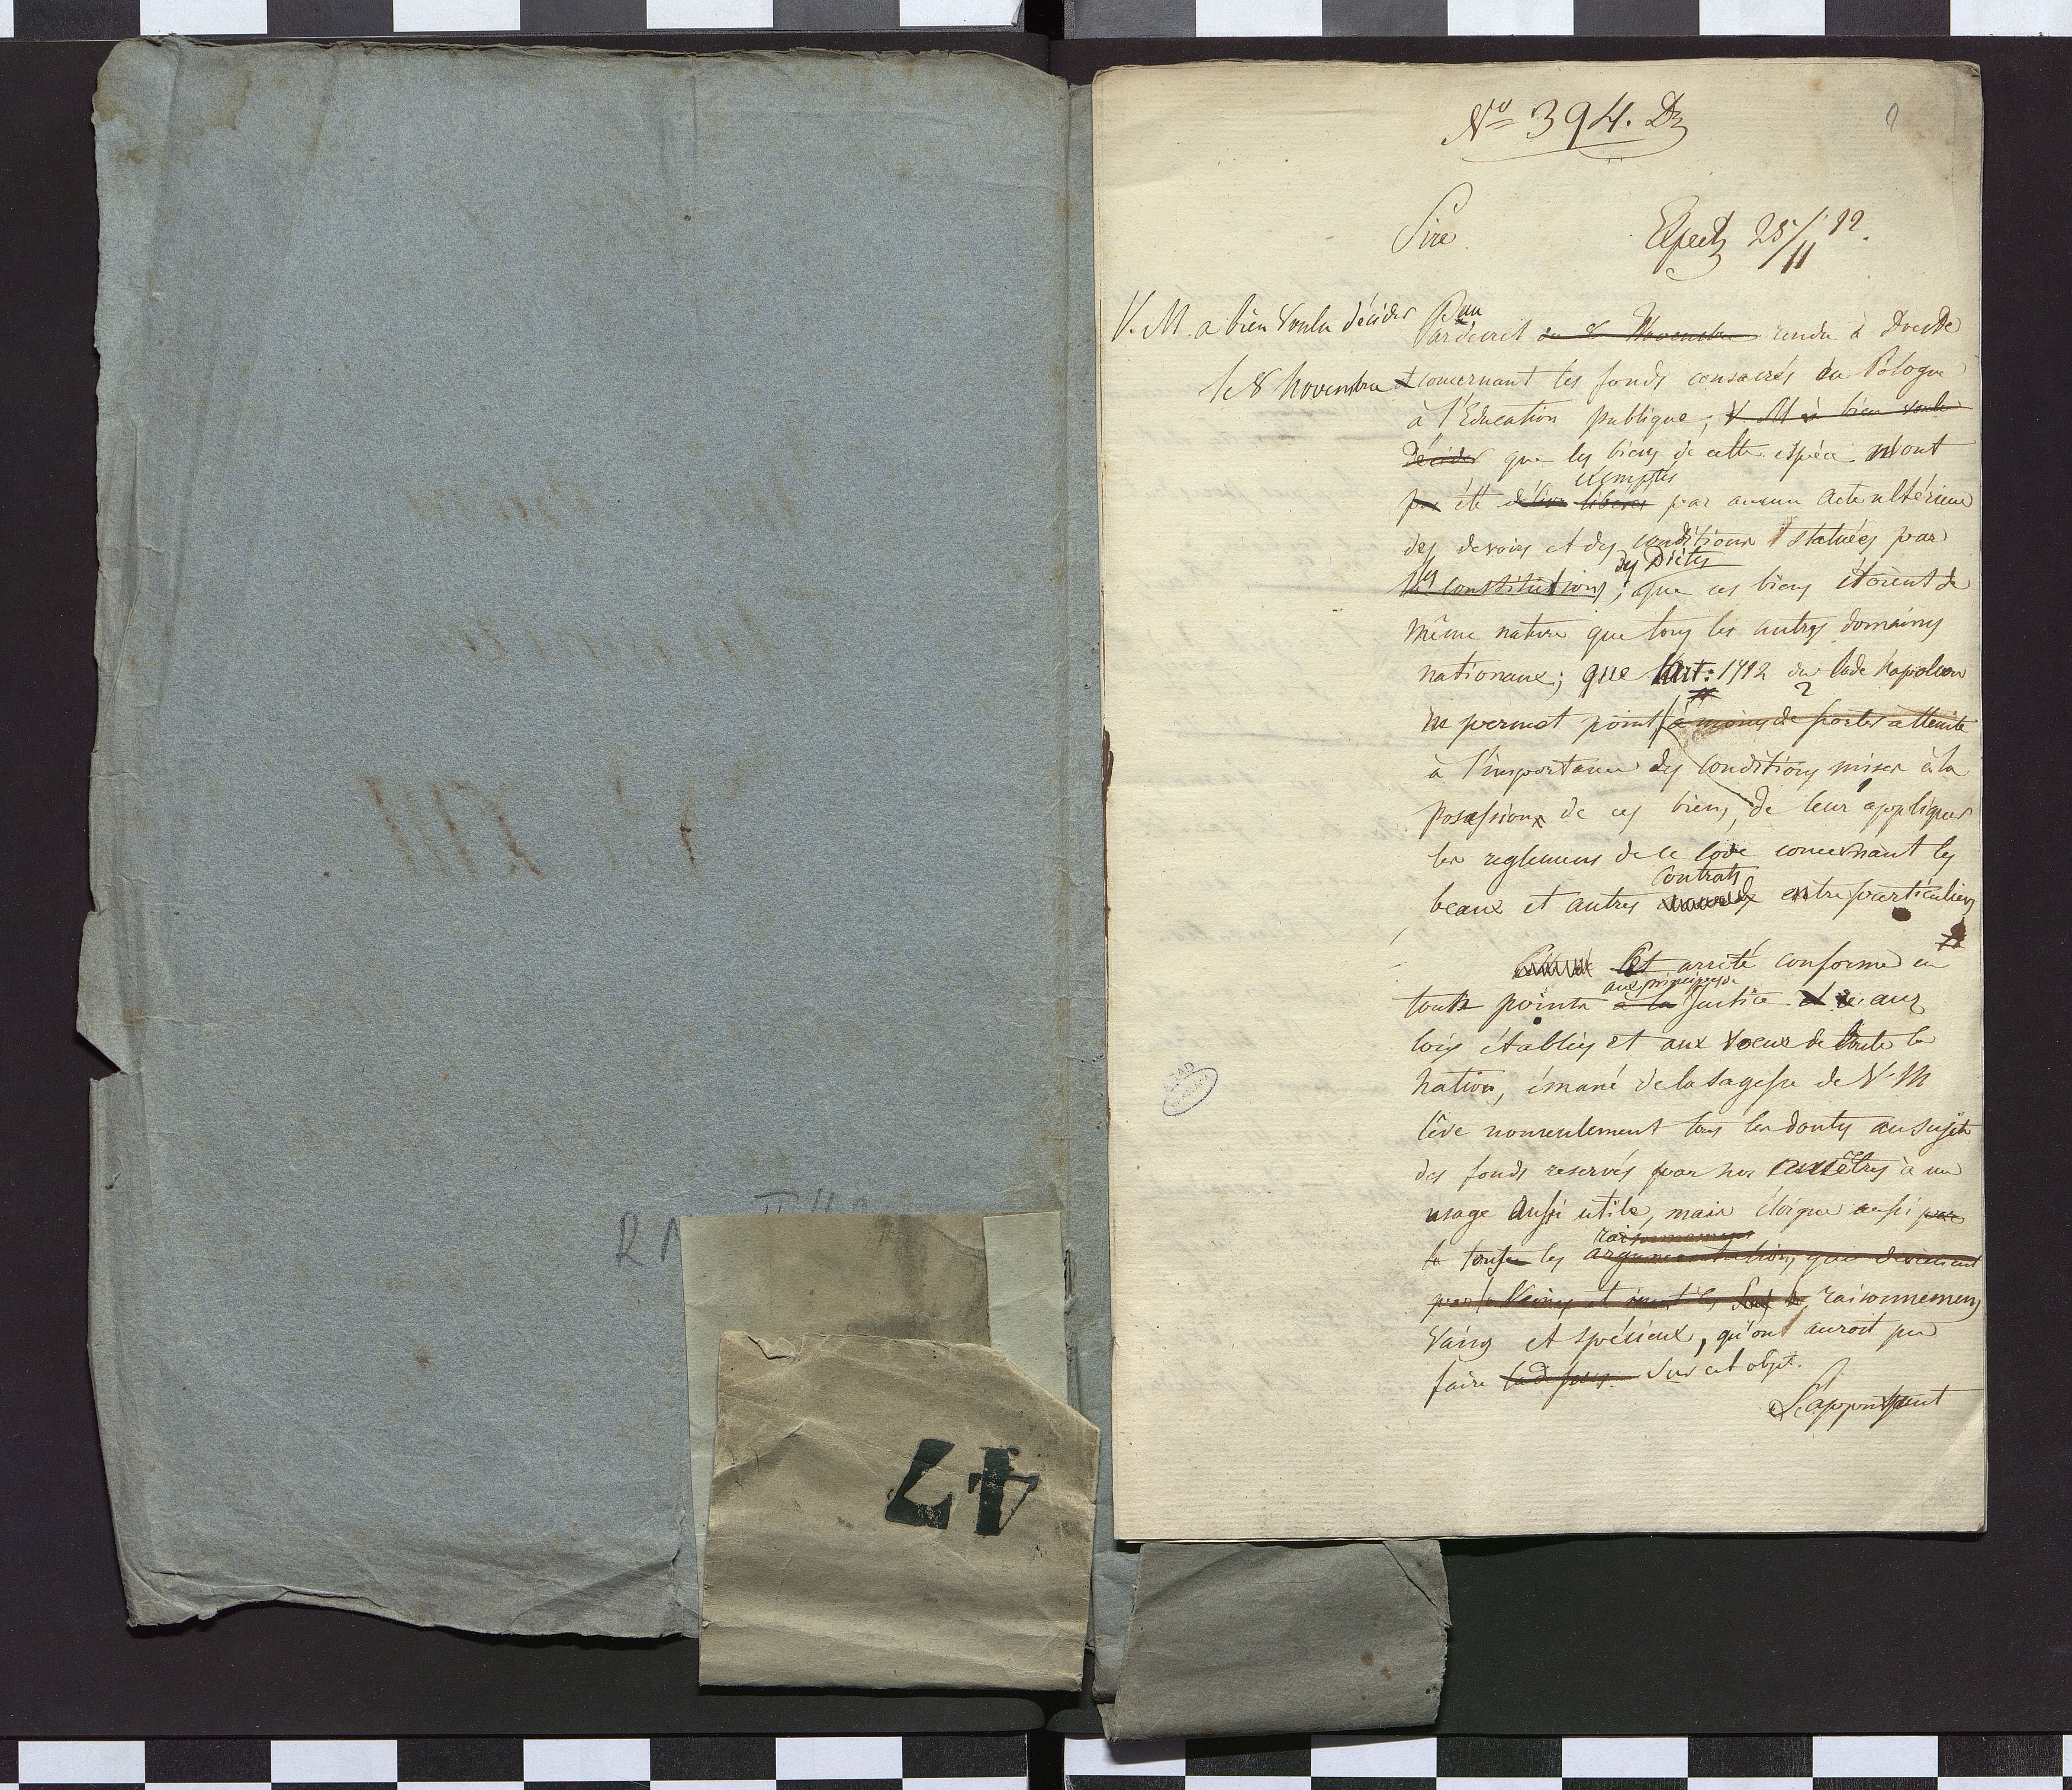 No 394. Dz
Sire
Exped 25/11 12.
V. M. a bien voulu décider
le 8 Novembre
Par un
decret du 8 Novembre rendu à Dresde
et concernant les fonds consacrés en Pologne
à l'Education publique; V. M. a bien voulu
décider que les biens de cette espéce n'ont
exemptés
pas été liberés par aucun Acte ultérieur
des devoirs et des conditions statuées par
des Diètes
les constitutions; que ces biens étoient de
même nature que tous les autres domaines
nationaux; que l'Art: 1712 du Code Napoleon
ne permet point (a moins de porter atteinte
à l'importance des conditions mises à la
possession de ces biens, de leur appliquer
les reglemens de ce Code concernant les
contrats
beaux et autres entre particuliers
Cet arrêté conforme en
aux principes de
touts points à la justice aux
loix établies et aux voeux de toute la
Nation, émané de la sagesse de V. M
léve nonseulement tous les doutes au sujet
des fonds reservés par nos ancêtres à un
usage aussi utile, mais éloigne aussi par
raisonnemens
la les argumentations qui deviennent
par là vaines et raisonnemens
vains et spécieux, qu'ont auroit pu
faire sur cet objet.
47